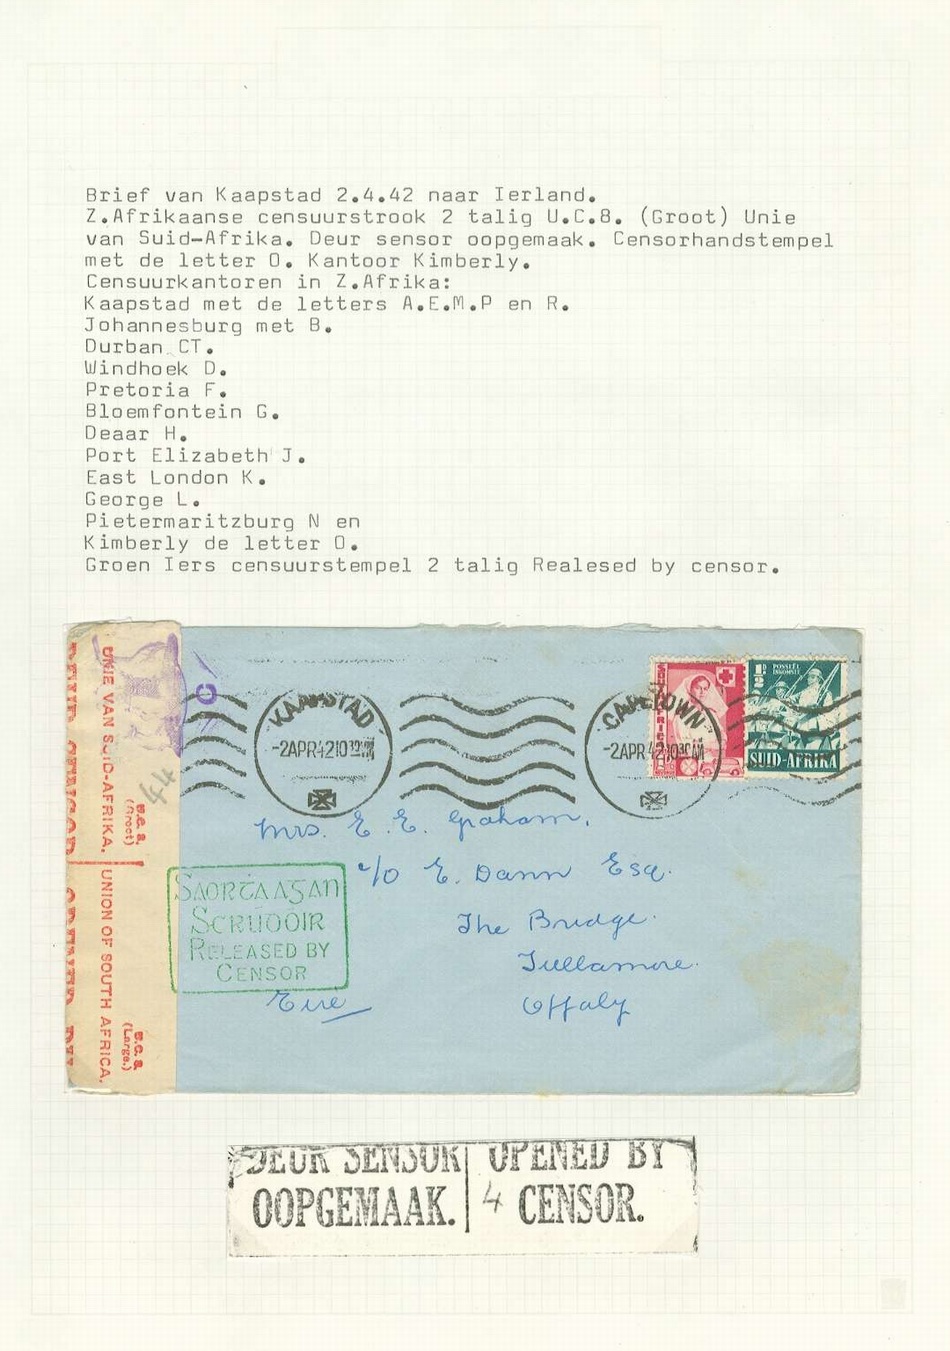 Brief van Kaapstad 2.4.42 naar Ierland.
Z.Afrikaanse censuurstrook 2 talig U.C.8. (Groot) Unie
van Suid-Afrika. Deur sensor oopgemaak. Censorhandstempel
met de letter O. Kantoor Kimberly.
Censuurkantoren in Z.Afrika:
Kaapstad met de letters A.E.M.P en R.
Johannesburg met B.
Durban CT.
Windhoek D.
Pretoria F.
Bloemfontein G.
Deaar H.
Port Elizabeth J.
East London K.
George L.
Pietermaritzburg N en
Kimberly de letter O.
Groen Iers censuurstempel 2 talig Realesed by censor.
UNIE VAN SUID-AFRIKA.
(Groot)
UNION OF SOUTH AFRICA.
(Large.)
44
C
KAAPSTAD
-2APR42
CAPETOWN
-2APR42
½D
POSSEËL
INKOMSTE
SUID-AFRIKA
Mrs. E. E. Graham.
c/o E. Dann Esq.
The Bridge.
Tullamore.
Offaly
Eire
SAORTA AG AN
SCRÚDÓIR
RELEASED BY
CENSOR
DEUR SENSOR OPENED BY
OOPGEMAAK. 4 CENSOR.